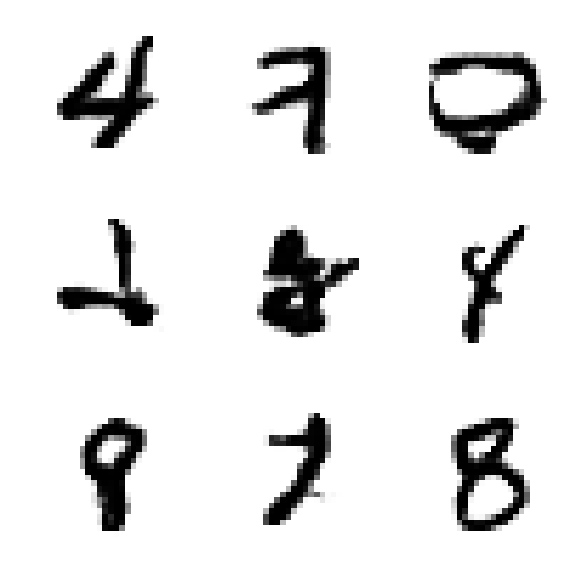 4 7 0
1 8 8
9 7 8